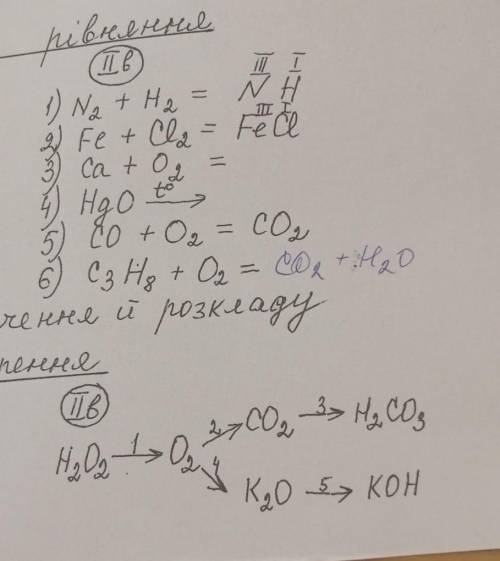 рівняння
IIв
1) N₂ + H₂ = N^III H^I
2) Fe + Cl₂ = Fe^III Cl^I
3) Ca + O₂ =
4) HgO t° →
5) CO + O₂ = CO₂
6) C₃H₈ + O₂ = CO₂ + H₂O
чення й розкладу
рення
IIв
H₂O₂ 1→ O₂ 2→ CO₂ 3→ H₂CO₃
4→ K₂O 5→ KOH